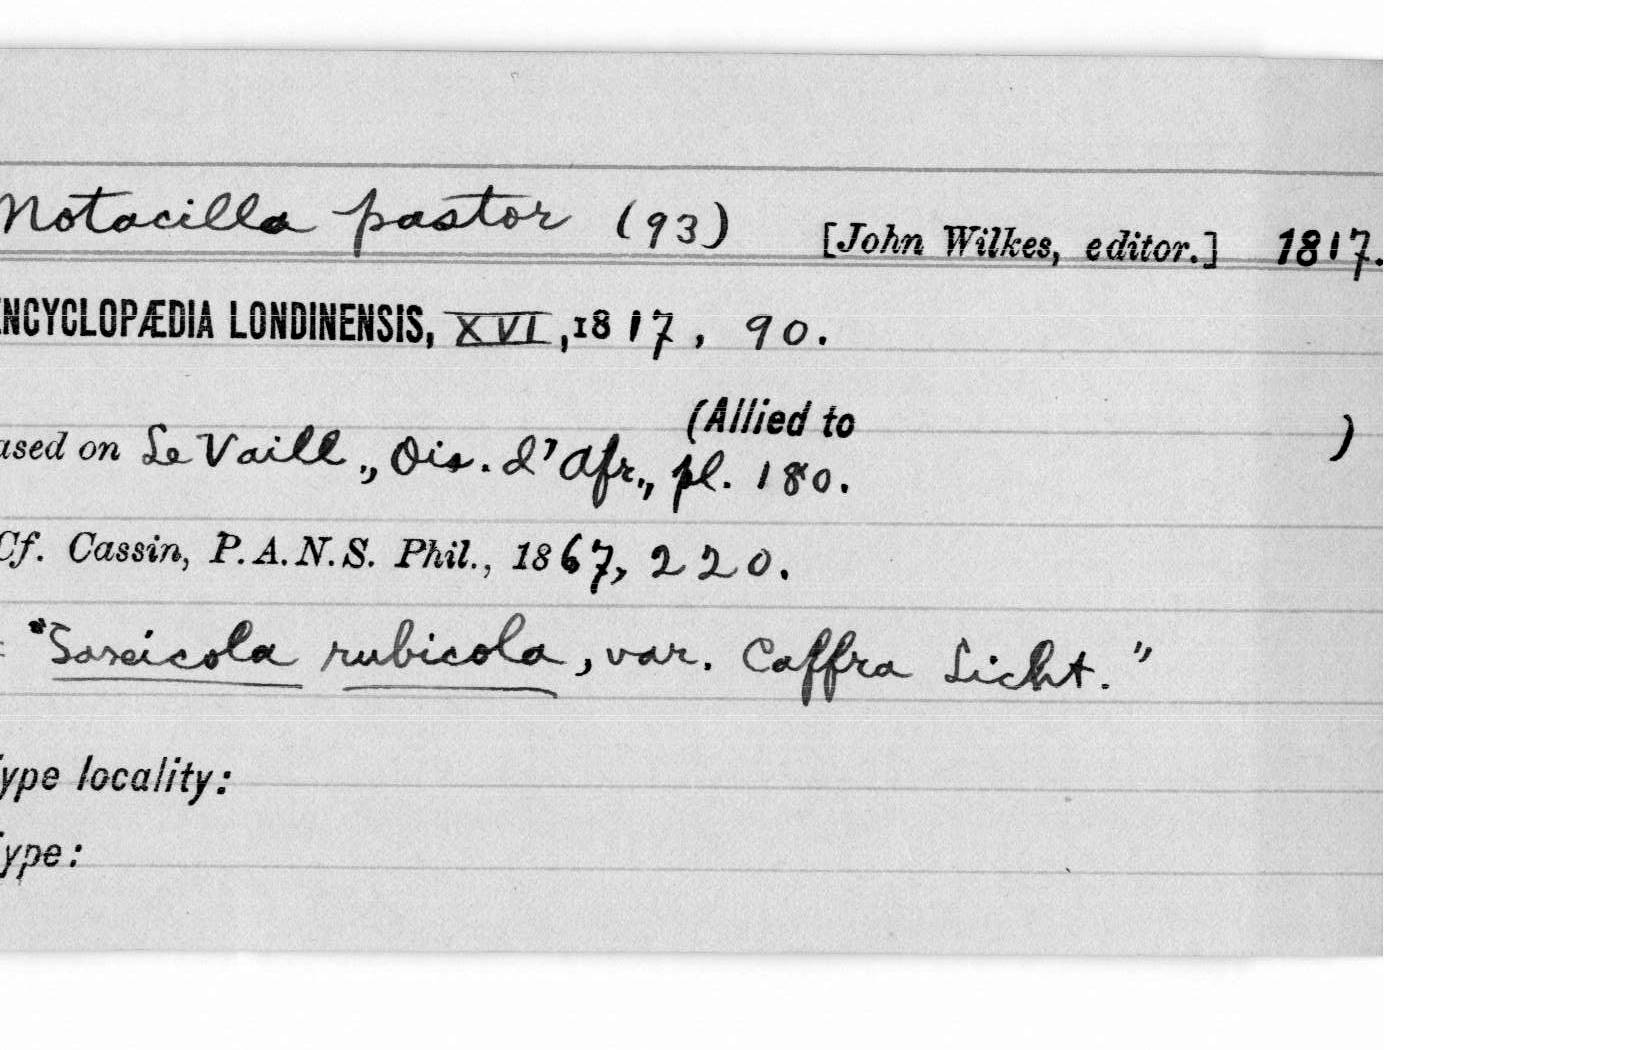 Motacilla pastor (93) [John Wilkes, editor.] 1817.
ENCYCLOPÆDIA LONDINENSIS, XVI, 1817, 90.
(Allied to )
ased on Le Vaill., Ois. d'Afr., pl. 180.
Cf. Cassin, P.A.N.S. Phil., 1867, 220.
= "Saxicola rubicola, var. Caffra Licht."
ype locality:
ype: